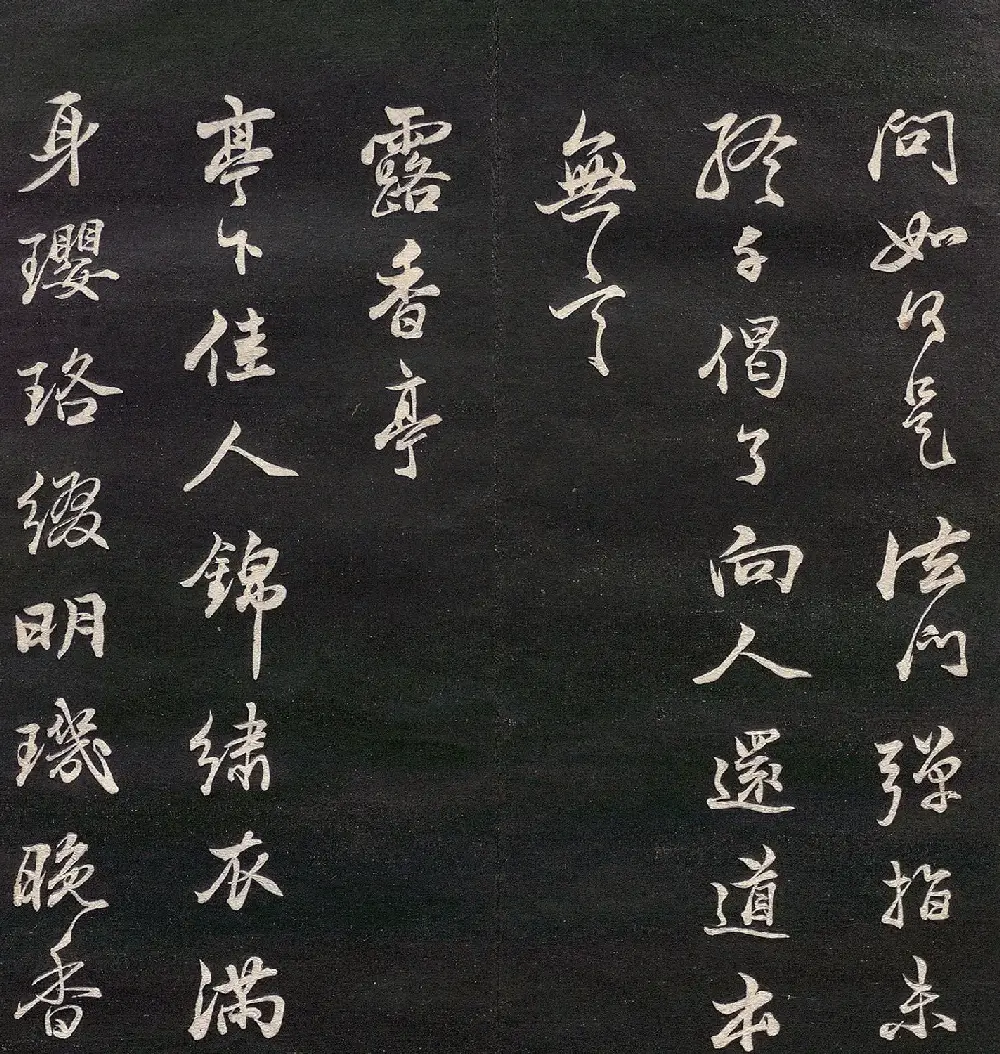 問如何是法門彈指未
終千偈了向人還道本
無言
露香亭
亭下佳人錦繡衣滿
身瓔珞綴明璣晚香